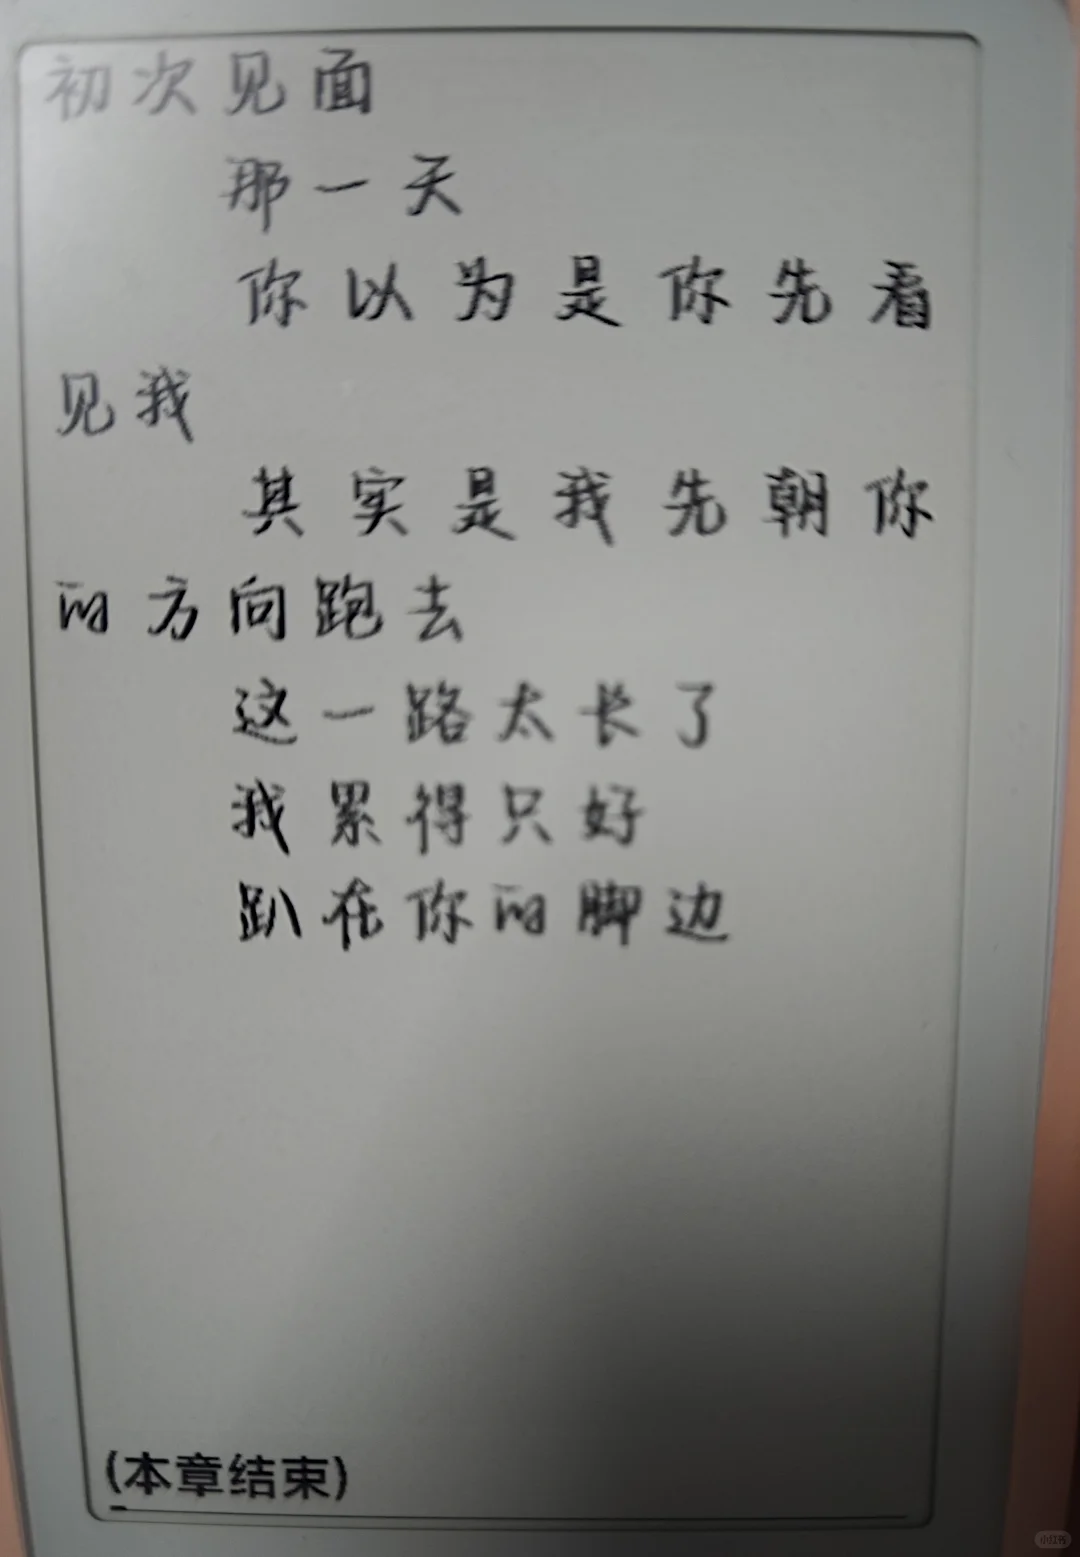 初次见面
那一天
你以为是你先看
见我
其实是我先朝你
的方向跑去
这一路太长了
我累得只好
趴在你的脚边
(本章结束)
小红书